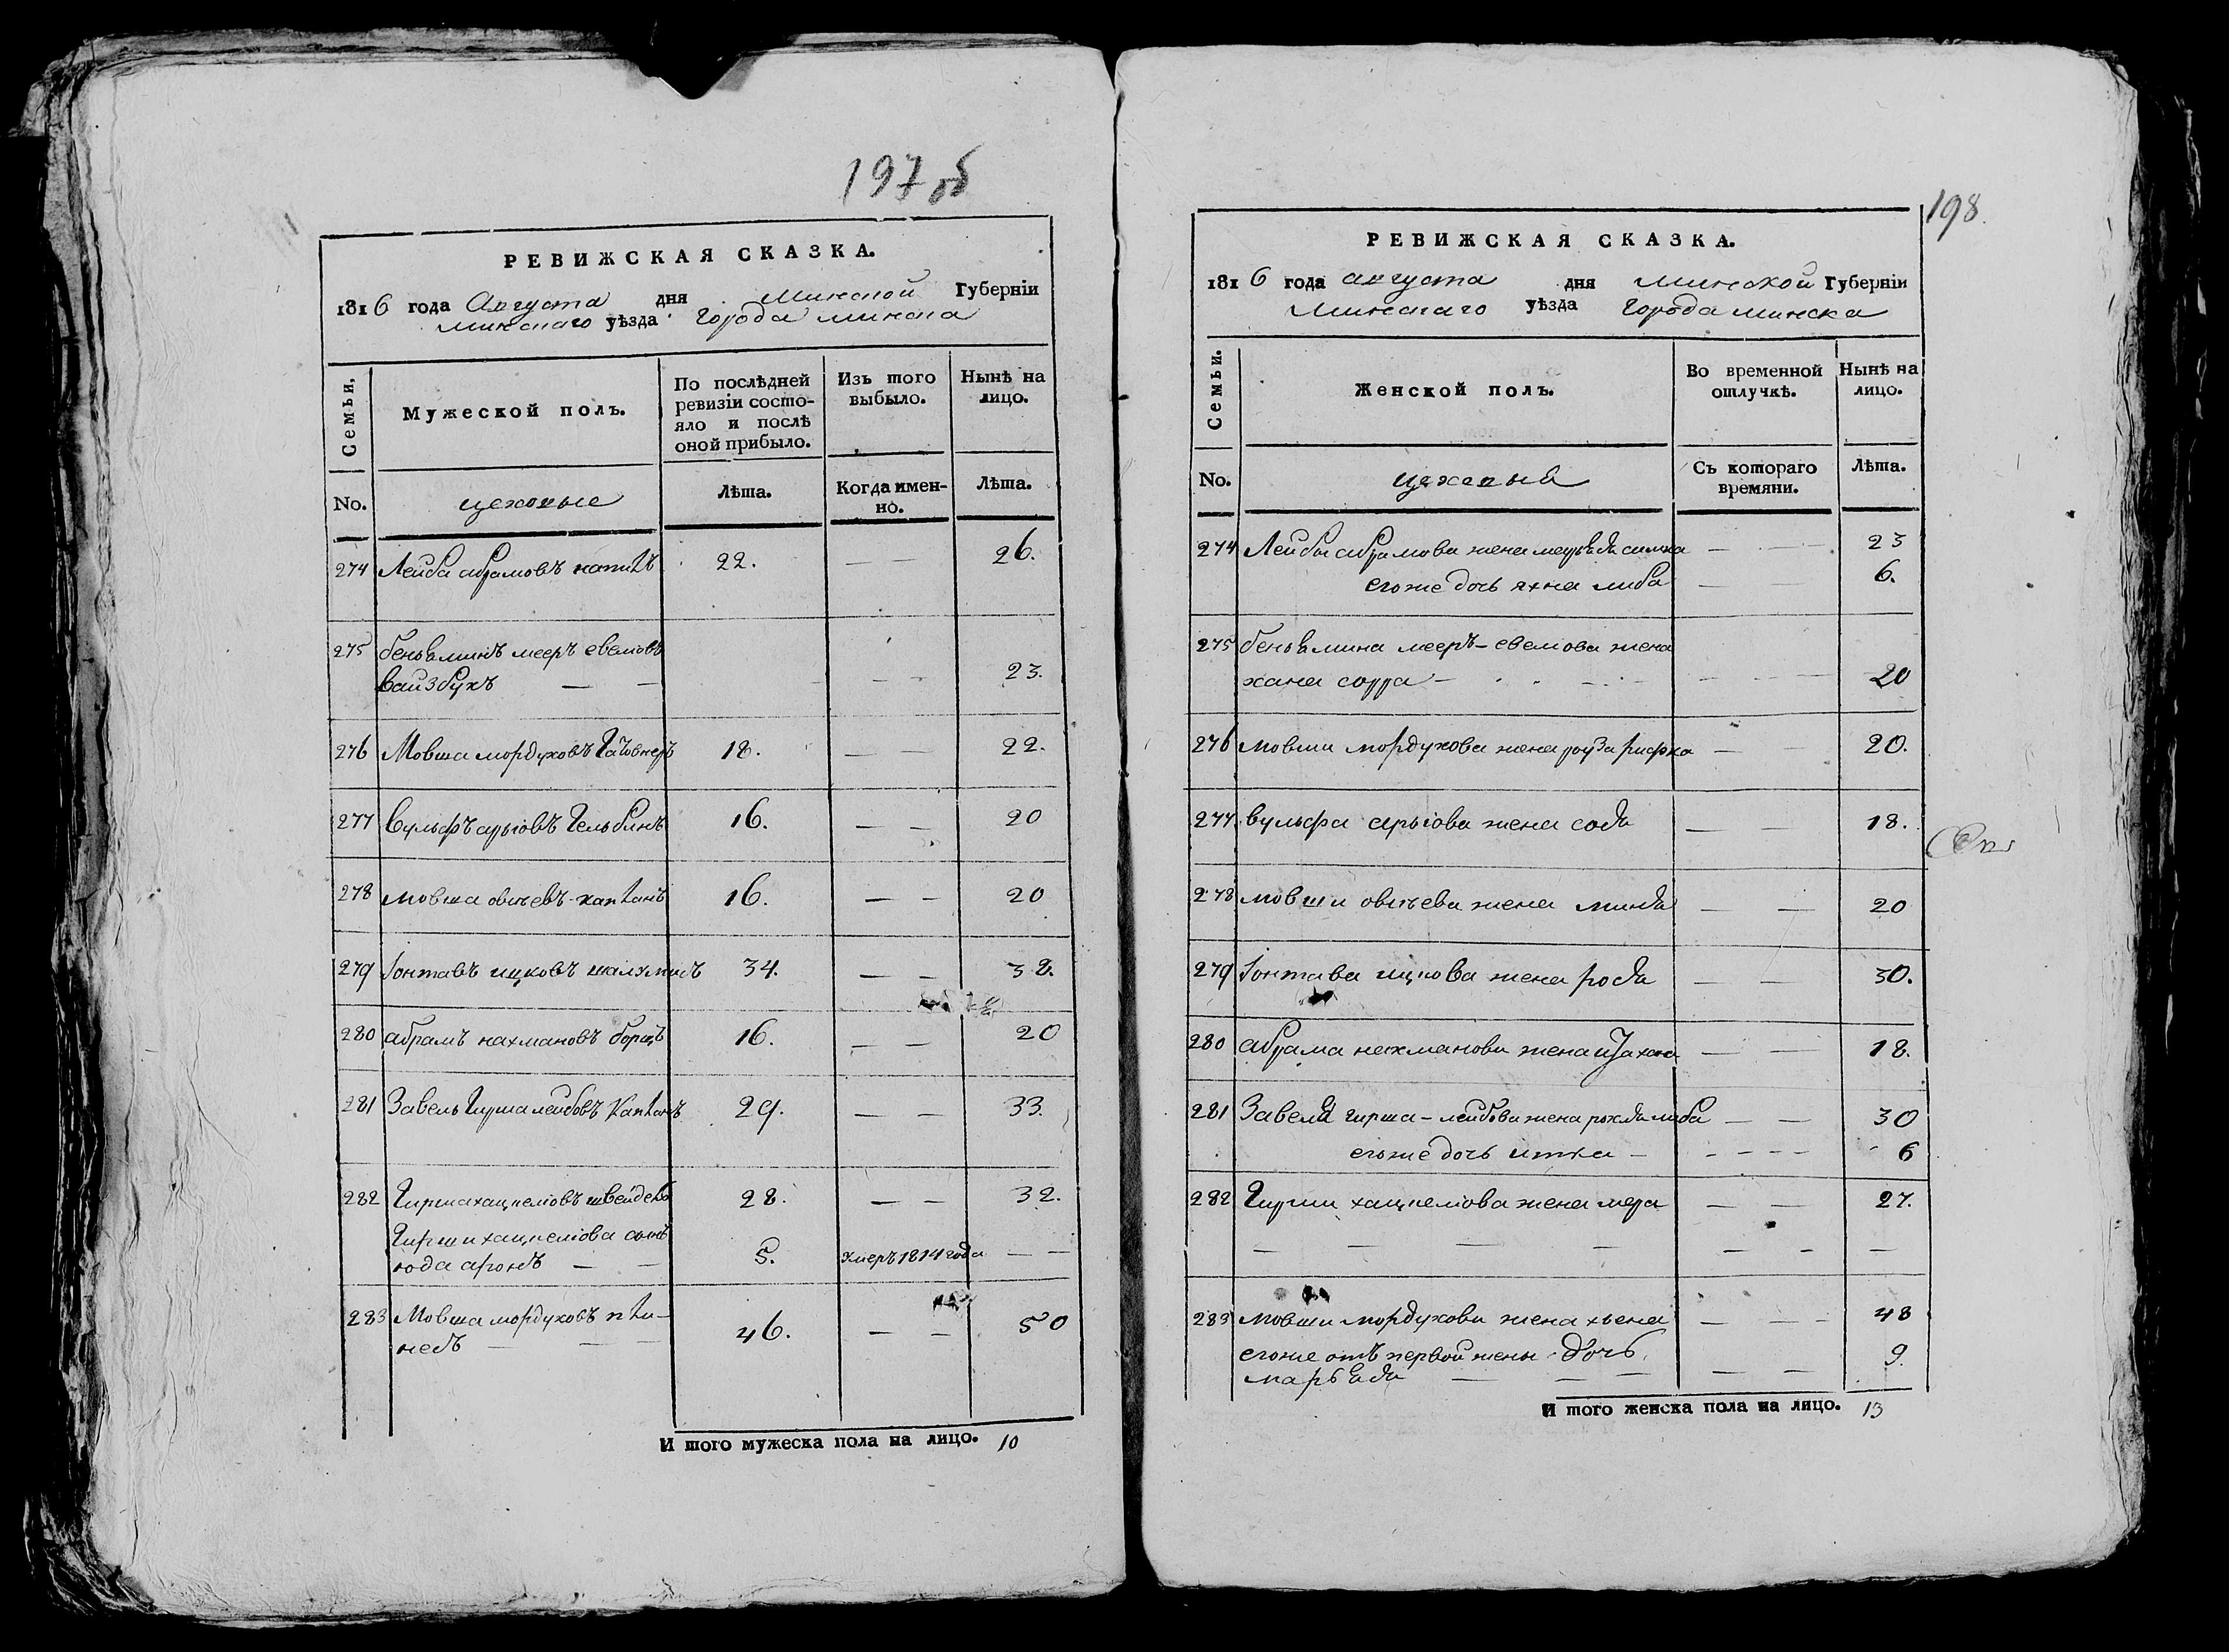 197 об
РЕВИЖСКАЯ СКАЗКА.
1816 года Августа дня Минской Губерніи
Минскаго уѣзда Города Минска
Семьи.
Мужеской полъ.
По послѣдней ревизіи состо-
яло и послѣ оной прибыло.
Изъ того выбыло.
Нынѣ на лицо.
No.
цеховые
Лѣта.
Когда имен-
но.
Лѣта.
274 Лейба абрамовъ 22. — — 26.
275 беньяминъ мееръ евелiовъ
вайзбухъ — — — — 23.
276 Мовша мордуховъ 18. — — 22.
277 Вульфъ арьіовъ Гельблнъ 16. — — 20
278 мовша овсѣевъ каплан 16. — — 20
279 Іонтавъ ицковъ 34. — — 38.
280 абрамъ нахмановъ борщъ 16. — — 20
281 Завель Гирша лейбовъ Капланъ 29. — — 33.
282 Гирша хацкелiовъ 28. — — 32.
Гирши хацкелiова сынъ
юда аронъ — — 5. умеръ 1814 года — —
283 Мовша мордуховъ 46. — — 50
И того мужеска пола на лицо. 10
198.
РЕВИЖСКАЯ СКАЗКА.
1816 года августа дня Минской Губерніи
Минскаго уѣзда Города Минска
Семьи.
Женской полъ.
Во временной отлучкѣ.
Нынѣ на лицо.
No.
цеховыя
Съ котораго времяни.
Лѣта.
274 Лейбы абрамова жена симка — — 23
его же дочь яхна либа — — 6.
275 беньямина мееръ-евелiова жена
хана сорра — — — 20
276 мовши мордухова жена роуза рифка — — 20.
277. вульфа арьіова жена содя — — 18.
278 мовши овсѣева жена миндя — — 20
279 Іонтава ицкова жена родя — — 30.
280 абрама нахманова жена — — 18.
281 Завеля гирша-лейбова жена рохля либа — — 30
его же дочь итка — — — 6
282 Гирши хацкелiова жена мера — — 27.
— — — — — — —
283 мовши мордухова жена хьена — — 48
его же отъ первой жены дочь
марьядя — — — — — 9.
И того женска пола на лицо. 13